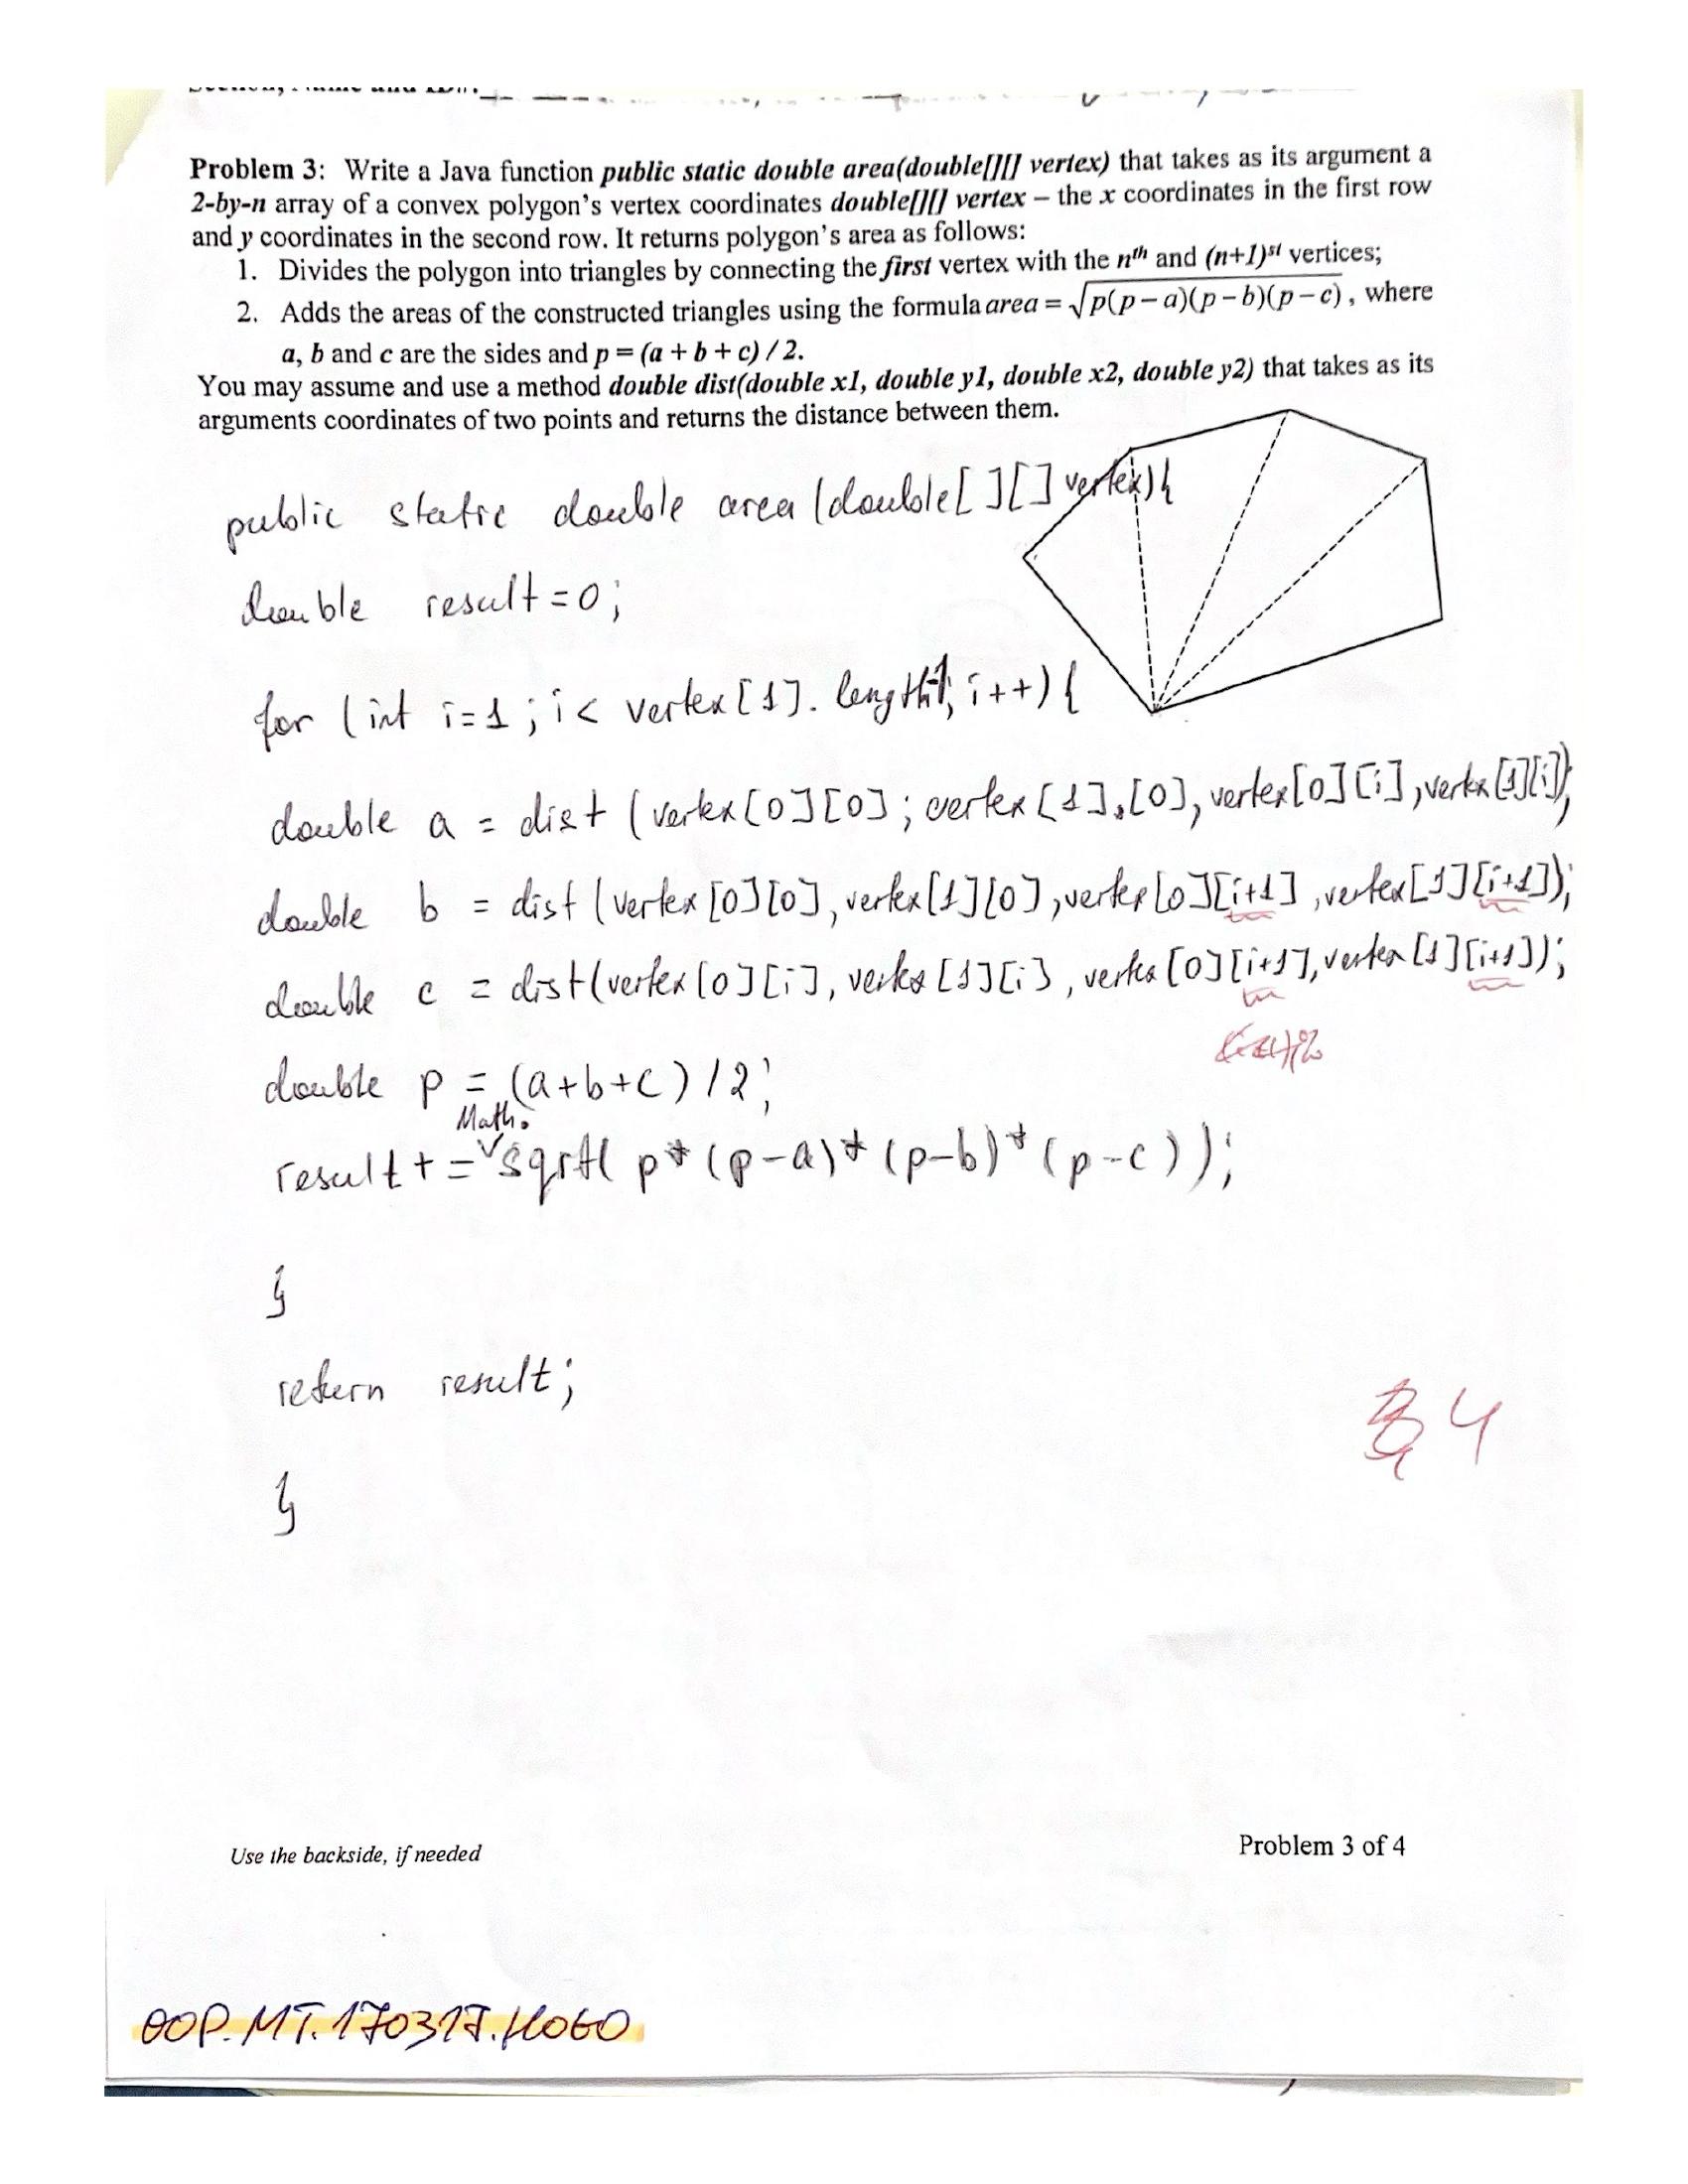 Problem 3: Write a Java function public static double area(double[][] vertex) that takes as its argument a
2-by-n array of a convex polygon's vertex coordinates double[][] vertex – the x coordinates in the first row
and y coordinates in the second row. It returns polygon's area as follows:
1. Divides the polygon into triangles by connecting the first vertex with the nth and (n+1)st vertices;
2. Adds the areas of the constructed triangles using the formula area = √p(p – a)(p – b)(p – c) , where
a, b and c are the sides and p = (a + b + c) / 2.
You may assume and use a method double dist(double x1, double y1, double x2, double y2) that takes as its
arguments coordinates of two points and returns the distance between them.
public static double area (double[ ][ ] vertex){
double result=0;
for (int i=1 ; i< vertex[1]. length-1; i++) {
double a = dist (vertex[0][0] ; vertex [1].[0], vertex[0][i], vertex[1][i]);
double b = dist (vertex [0][0], vertex[1][0], vertex[0][i+1], vertex[1][i+1]);
double c = dist(vertex[0][i], vertex[1][i], vertex[0][i+1], vertex[1][i+1]);
double p = (a+b+c) /2;
Math.
result+ = sqrt( p* (p-a)* (p-b)* (p-c));
}
return result;
4
}
Use the backside, if needed
Problem 3 of 4
OOP.MT.170317.K060